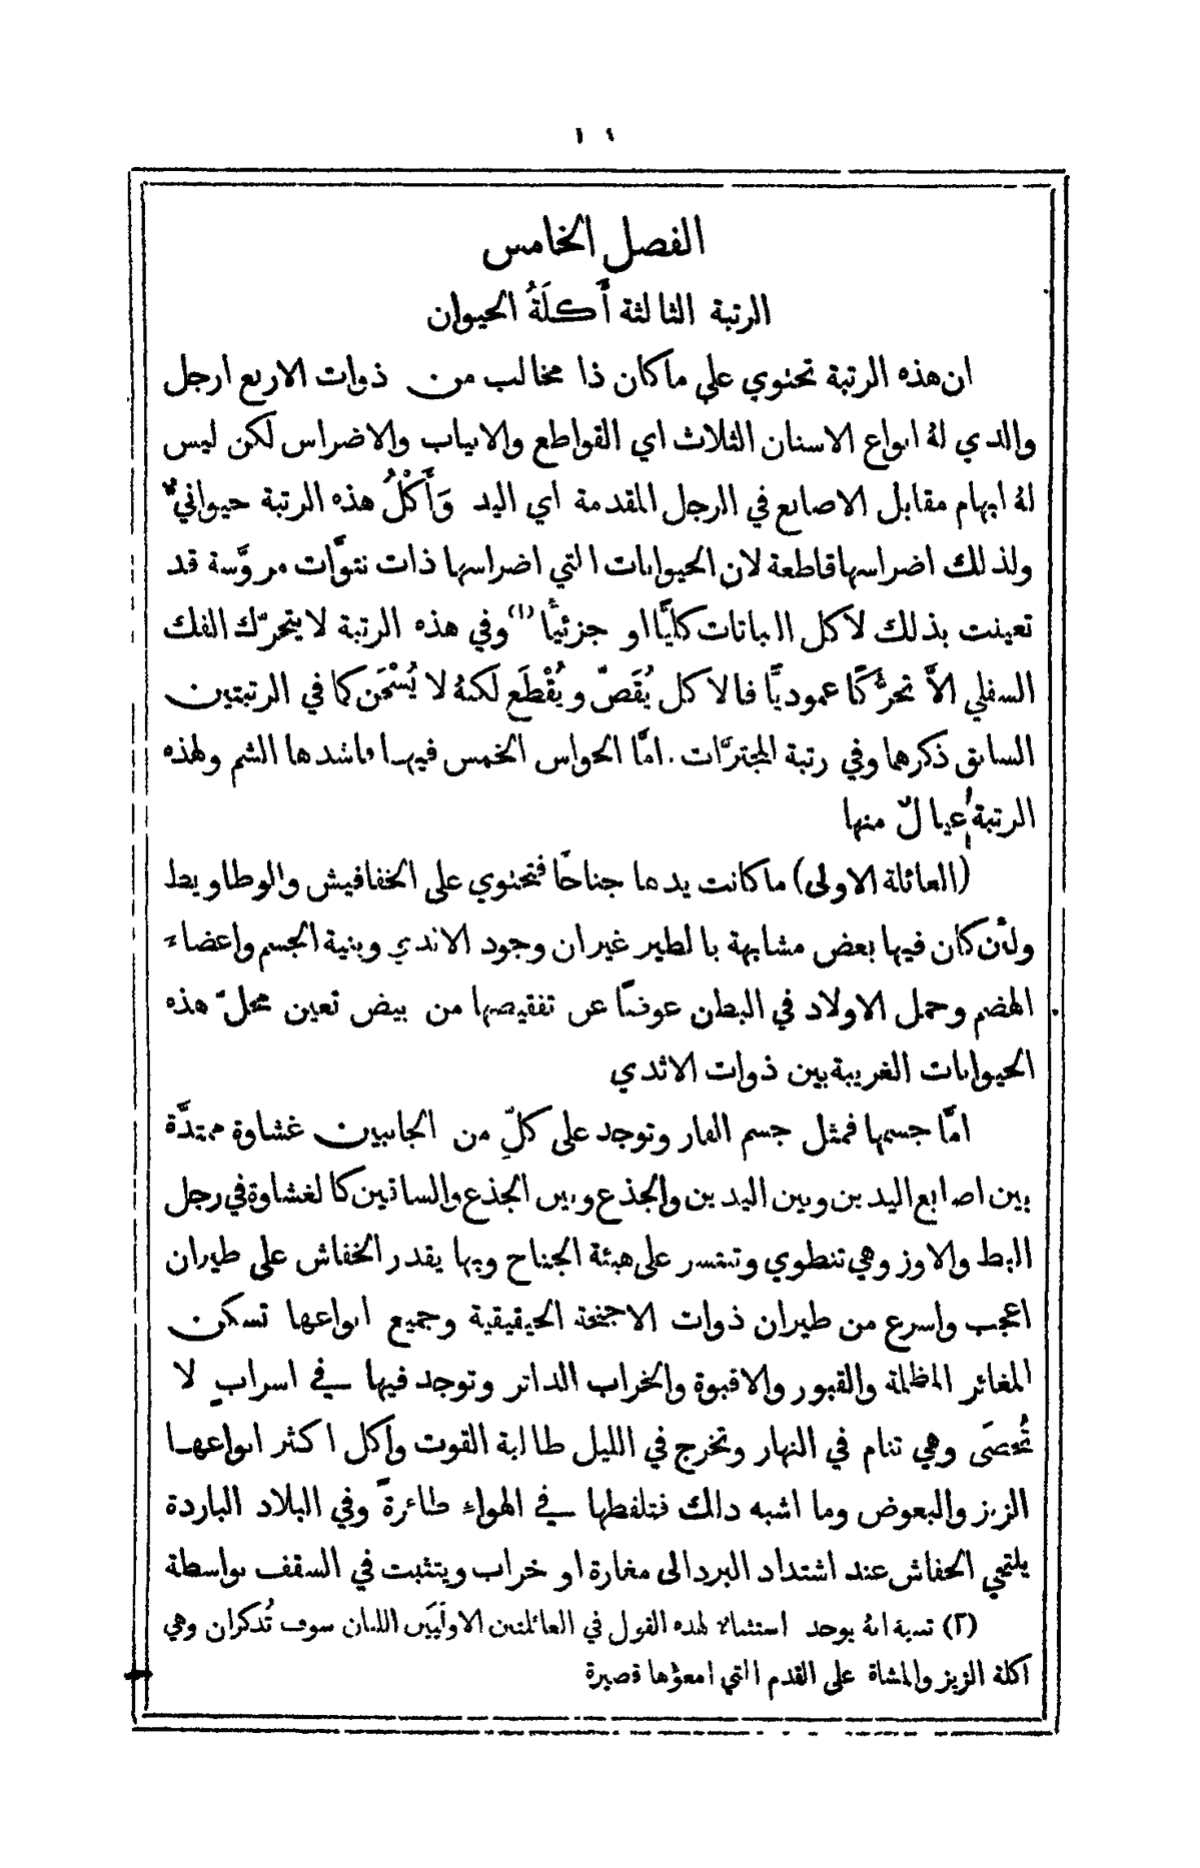 ١٩
الفصل الخامس
الرتبة الثالثة أَكَلَةُ الحيوان
ان هذه الرتبة تحتوي على ما كان ذا مخالب من ذوات الاربع ارجل
والذي لهُ انواع الاسنان الثلاث اي القواطع والانياب والاضراس لكن ليس
لهُ ابهام مقابل الاصابع في الرجل المقدمة اي اليد وَأَكْلُ هذه الرتبة حيوانيٌّ
ولذلك اضراسها قاطعة لان الحيوانات التي اضراسها ذات نتوَّات مروَّسة قد
تعينت بذلك لاكل النباتات كليًّا او جزئيًّا (١) وفي هذه الرتبة لا يتحرَّك الفك
السفلي الاَّ تحرُّكًا عموديًّا فالاكل يُقَصّ ويُقْطَع لكنهُ لا يُسْحَن كما في الرتبتين
السابق ذكرها وفي رتبة المجترَّات . امَّا الحواس الخمس فيها فاشدها الشم ولهذه
الرتبة عيالٌ منها
(العائلة الاولى) ما كانت يدها جناحًا فتحتوي على الخفافيش والوطاويط
ولئن كان فيها بعض مشابهة بالطير غير ان وجود الاثدي وبنية الجسم واعضاء
الهضم وحمل الاولاد في البطن عوضًا عن تفقيصها من بيض تعين محلّ هذه
الحيوانات الغريبة بين ذوات الاثدي
امَّا جسمها فمثل جسم الفار وتوجد على كلٍّ من الجانبين غشاوة ممتدَّة
بين اصابع اليدين وبين اليدين والجذع وبين الجذع والساقين كالغشاوة في رجل
البط والاوز وهي تنطوي وتنتشر على هيئة الجناح وبها يقدر الخفاش على طيران
اعجب واسرع من طيران ذوات الاجنحة الحقيقية وجميع انواعها تسكن
المغائر المظلمة والقبور والاقبوة والخراب الداثر وتوجد فيها في اسرابٍ لا
تُحصَى وهي تنام في النهار وتخرج في الليل طالبة القوت وأكل اكثر انواعها
الزيز والبعوض وما اشبه ذالك فتلقطها في الهواء طائرةً وفي البلاد الباردة
يلتجي الخفاش عند اشتداد البرد الى مغارة او خراب ويتثبت في السقف بواسطة
(٢) تنبيه انهُ يوجد استثناءً لهذه القول في العائلتين الاوليَين اللتان سوف تُذكران وهي
اكلة الزيز والمشاة على القدم التي امعؤها قصيرة